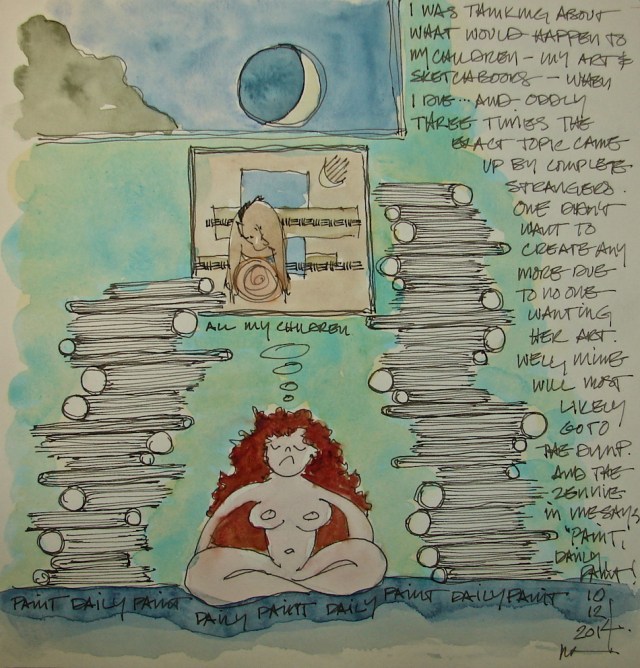 I WAS THINKING ABOUT
WHAT WOULD HAPPEN TO
MY CHILDREN - MY ART &
SKETCHBOOKS - WHEN
I DIE... AND ODDLY
THREE TIMES THE
EXACT TOPIC CAME
UP BY COMPLETE
STRANGERS.
ONE DIDN'T
WANT TO
CREATE ANY
MORE DUE
TO NO ONE
WANTING
HER ART.
WELL, MINE
WILL MOST
LIKELY
GO TO
THE DUMP.
AND THE
ZENNIE
IN ME SAYS
"PAINT,
DAILY
PAINT!
10
12
2014
ALL MY CHILDREN
PAINT DAILY PAINT DAILY PAINT DAILY PAINT DAILY PAINT